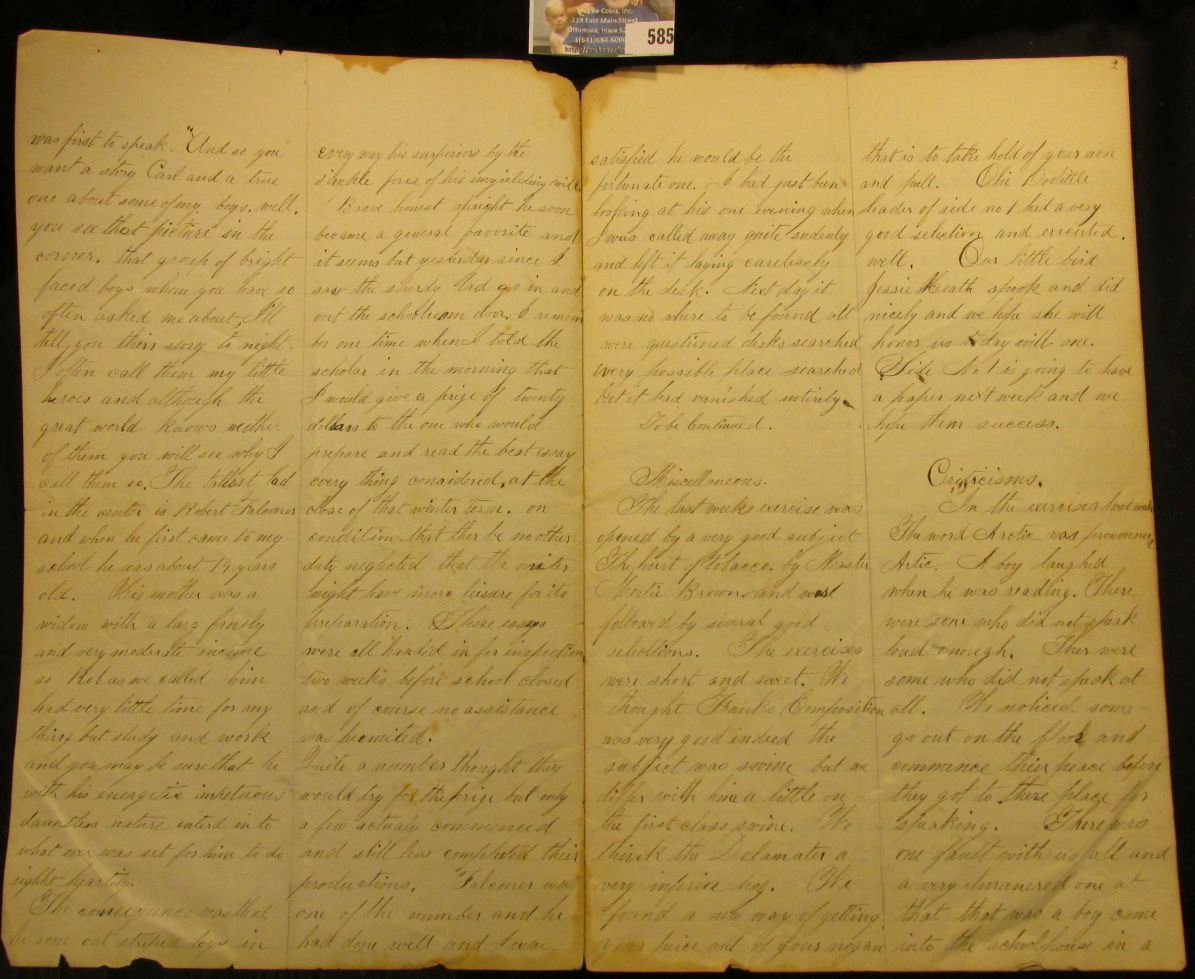 Coins, Inc.
213 East Main Street
Ottumwa, Iowa
1(641)684-6006
585
2
was first to speak. "And so you
want a story Carl and a true
one about some of my boys. well.
you see that picture in the
corner. that group of bright
faced boys whom you have so
often asked me about, I'll
tell you thier story to night.
I often call them my little
heroes and although the
great world knows neither
of them you will see why I
call them so. The tallest lad
in the center is Robert Falconer
and when he first came to my
school he was about 14 years
old. His mother was a
widow with a large family
and very moderate income
so Rob as we called him
had very little time for any
thing but study and work
and you may be sure that he
with his energetic impetuous
dauntless nature enterd in to
what ever was set for him to do
right heartily.
The consequence was that
he soon out striped boys in
every way his surperiors by the
simple force of his unyielding will
Brave honest upright he soon
became a general favorite and
it seems but yesterday since I
saw the sturdy lad go in and
out the schoolroom door. I remem
ber one time when I told the
scholar in the morning that
I would give a prize of twenty
dollars to the one who would
prepare and read the best essay
every thing considered, at the
close of that winter term. on
condition that ther be no other
duty neglected that the writer
might have more leisure for its
preparation. These essays
were all handed in for inspection
two weeks before school closed
and of course no assistance
was permited.
Quite a number thought they
would try for the prize but only
a few actualy commenced
and still less completed their
productions. Falconer was
one of the number and he
had done well and I was
satisfied he would be the
fortunate one. I had just been
looking at his one evening when
I was called away quite sudenly
and left it laying carelessly
on the desk. Next day it
was no where to be found all
were questioned desks searched
every possible place searched
but it had vanished entirely
To be Continued.
Miscellaneous.
The last weeks exercise was
opened by a very good subject
The hurt of tobacco. by Master
Mertie Brown and was
followed by several good
selections. The exercises
were short and sweet. We
thought Franks Composition
was very good indeed the
subject was swine but we
differ with him a little on
the first class swine. We
think the Delamater a
very inferior hog. We
found a new way of getting
your juice out of your
that is to take hold of your nose
and pull. Obie Doolittle
leader of side no 1 had a very
good selection and executed.
well. Our little bird
Jessie Heath spook and did
nicely and we hope she will
honor us to day with one.
Side No 1 is going to have
a paper next week and we
hope them success.
Criticisms.
In the exercises last week
The word Arctic was pronounced
Artic. A boy laughed
when he was reading. There
were some who did not speak
loud enough. Ther were
some who did not speak at
all. We noticed some
go out on the floor and
commence thier peace before
they got to there place for
speaking. There was
one fault with us all and
a very illmanered one at
that that was a boy came
into the schoolhouse in a